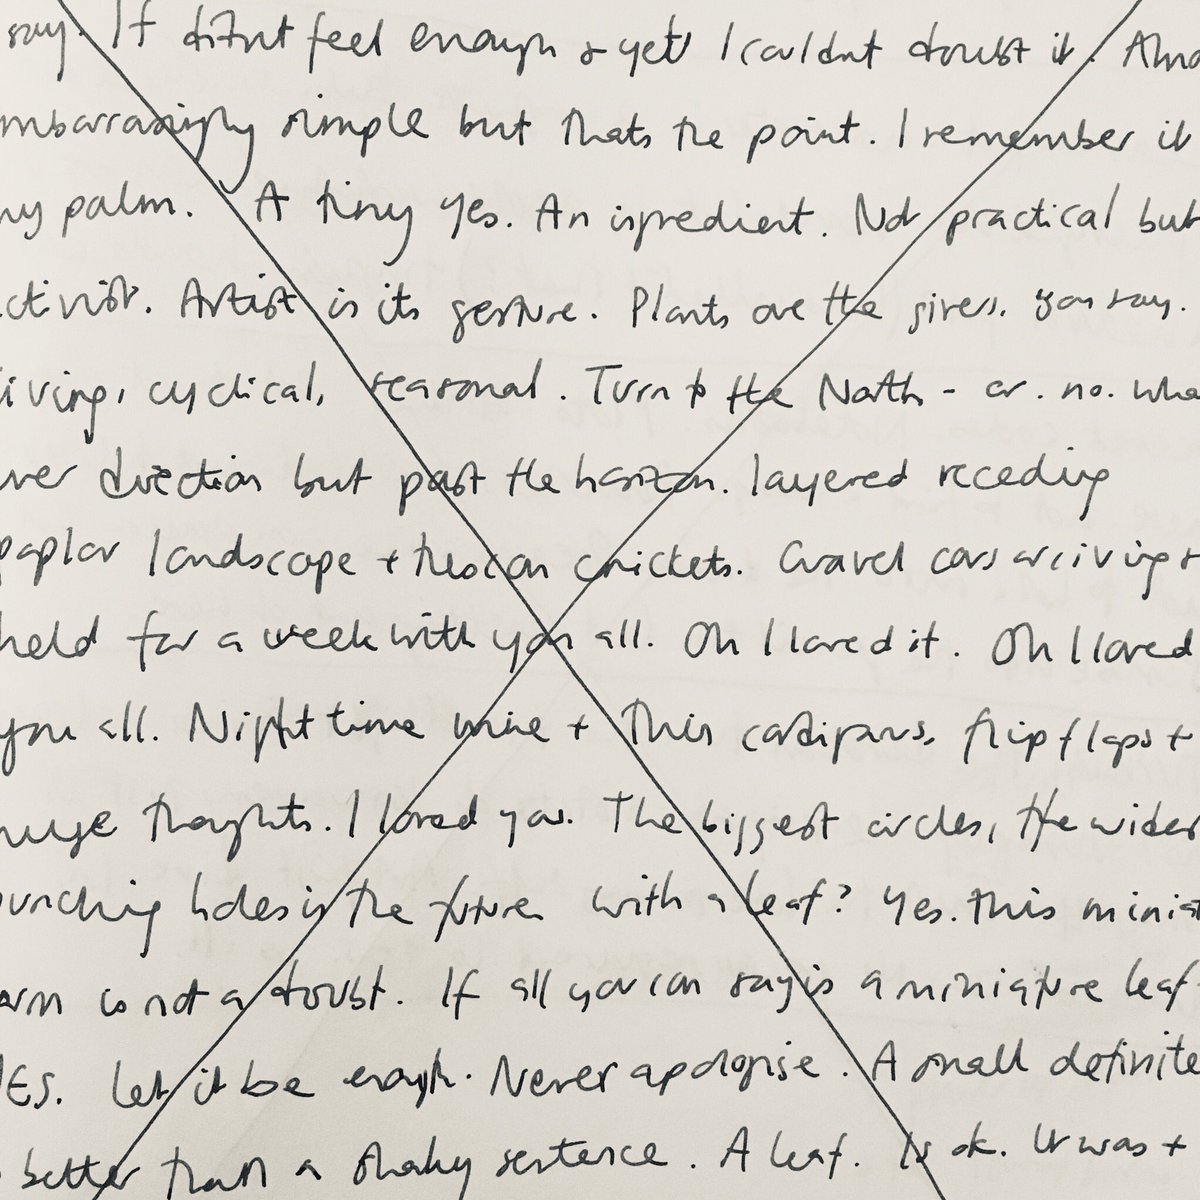 say. It didnt feel enough & yet I couldnt doubt it. Almo
mbarrasingly simple but thats the point. I remember it
my palm. A tiny yes. An ingredient. Not practical but
ctivist. Artist in its gesture. Plants are the givers, you say.
iving, cyclical, seasonal. Turn to the North - or. no. wha
ver direction but past the horizon. layered receding
poplar landscape + tuscan crickets. Gravel cars arriving +
held for a week with you all. Oh I loved it. Oh I loved
you all. Night time wine + thin cardigans, flip flops +
huge thoughts. I loved you. The biggest circles, the wider
punching holes in the future with a leaf? Yes. this miniat
arm is not a doubt. If all you can say is a miniature leaf -
YES. Let it be enough. Never apologise. A small definite
better than a shaky sentence. A leaf. Is ok. It was +